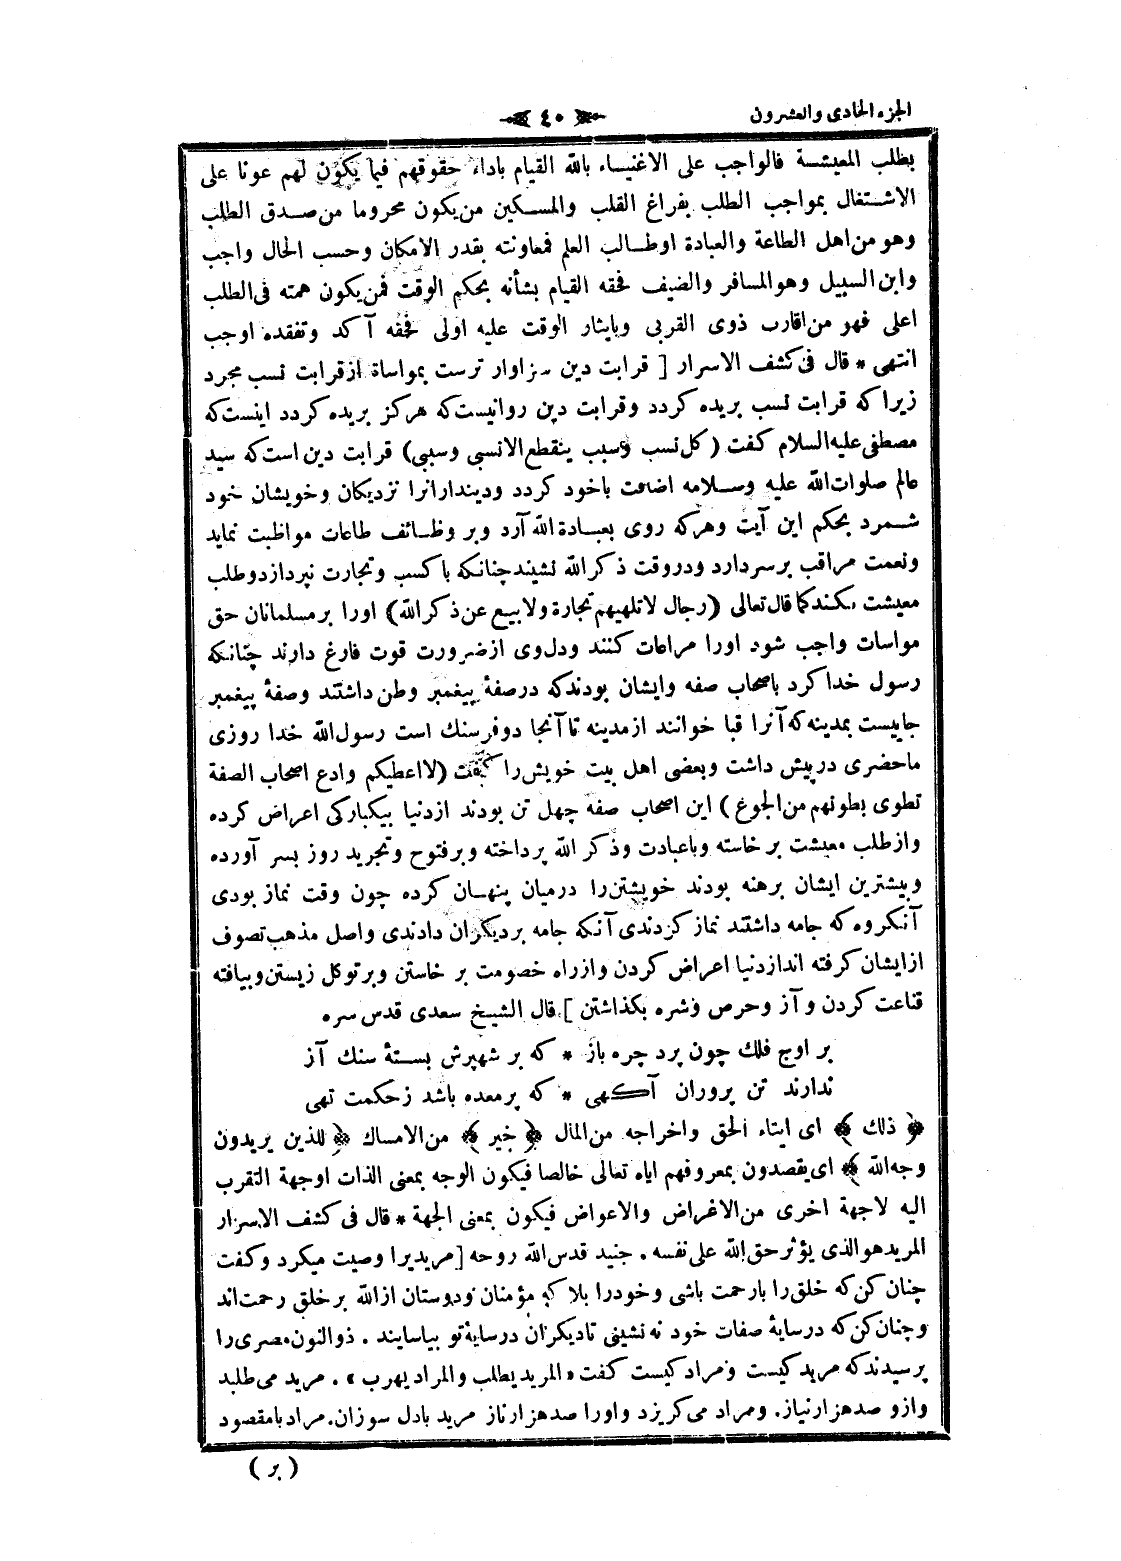 الجزء الحادى والعشرون
٤٠
يطلب المعيشة فالواجب على الاغنياء بالله القيام باداء حقوقهم فيما يكون لهم عونا على
الاشتغال بمواجب الطلب بفراغ القلب والمسكين من يكون محروما من صدق الطلب
وهو من اهل الطاعة والعبادة او طالب العلم فمعاونته بقدر الامكان وحسب الحال واجب
وابن السبيل وهو المسافر والضيف فحقه القيام بشأنه بحكم الوقت فمن يكون همته فى الطلب
اعلى فهو من اقارب ذوى القربى وبايثار الوقت عليه اولى فحقه آكد وتفقده اوجب
انتهى * قال فى كشف الاسرار [ قرابت دين سزاوار ترست بمواساة از قرابت نسب مجرد
زيرا كه قرابت نسب بريده كردد وقرابت دين روانيست كه هركز بريده كردد اينست كه
مصطفى عليه السلام كفت ( كل نسب وسبب ينقطع الا نسبى وسببى ) قرابت دين است كه سيد
عالم صلوات الله عليه وسلامه اضافت باخود كردد ودينداران‌را نزديكان وخويشان خود
شمرد بحكم اين آيت وهر كه روى بعبادة الله آرد وبر وظائف طاعات مواظبت نمايد
ونعمت مراقب بر سر دارد ودر وقت ذكر الله نشيند چنانكه با كسب وتجارت نپردازد وطلب
معيشت نكند كما قال تعالى ( رجال لا تلهيهم تجارة ولا بيع عن ذكر الله ) اورا بر مسلمانان حق
مواسات واجب شود اورا مراعات كنند ودل وى از ضرورت قوت فارغ دارند چنانكه
رسول خدا كرد باصحاب صفه وايشان بودند كه در صفۀ پيغمبر وطن داشتند وصفۀ پيغمبر
جاييست بمدينه كه آنرا قبا خوانند از مدينه تا آنجا دو فرسنك است رسول الله خدا روزى
ماحضرى در پيش داشت وبعضى اهل بيت خويش‌را كفت ( لا اعطيكم وادع اصحاب الصفة
تطوى بطونهم من الجوع ) اين اصحاب صفه چهل تن بودند از دنيا بيكباركى اعراض كرده
واز طلب معيشت بر خاسته وباعبادت وذكر الله پرداخته وبر فتوح وتجريد روز بسر آورده
وبيشترين ايشان برهنه بودند خويشتن‌را درميان پنهان كرده چون وقت نماز بودى
آنكروه كه جامه داشتند نماز كردندى آنكه جامه بر ديكران دادندى واصل مذهب تصوف
از ايشان كرفته اند از دنيا اعراض كردن واز راه خصومت بر خاستن وبر توكل زيستن وبيافته
قناعت كردن وآز وحرص وشره بكذاشتن ] قال الشيخ سعدى قدس سره
بر اوج فلك چون پرد جره باز * كه بر شهپرش بستۀ سنك آز
ندارند تن پروران آكهى * كه پر معده باشد ز حكمت تهى
﴿ ذلك ﴾ اى ايتاء الحق واخراجه من المال ﴿ خير ﴾ من الامساك ﴿ للذين يريدون
وجه الله ﴾ اى يقصدون بمعروفهم اياه تعالى خالصا فيكون الوجه بمعنى الذات او جهة التقرب
اليه لا جهة اخرى من الاغراض والاعواض فيكون بمعنى الجهة * قال فى كشف الاسرار
المريد هو الذى يؤثر حق الله على نفسه . جنيد قدس الله روحه [ مريديرا وصيت ميكرد وكفت
چنان كن كه خلق‌را بارحمت باشى وخودرا بلا كه مؤمنان ودوستان از الله بر خلق رحمت‌اند
وچنان كن كه در سايۀ صفات خود نه نشينى تا ديكران در سايۀ تو بياسايند . ذو النون مصرى‌را
پرسيدند كه مريد كيست ومراد كيست كفت « المريد يطلب والمراد يهرب » . مريد مى‌طلبد
وازو صد هزار نياز. ومراد مى‌كريزد واورا صد هزار ناز مريد بادل سوزان. مراد بامقصود
( بر )